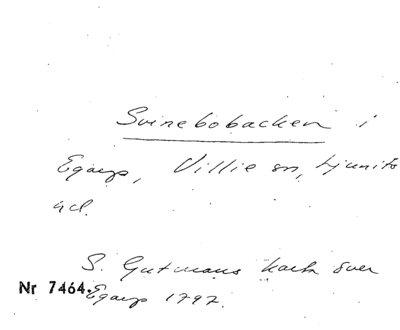 Svinebobacken i
Egarp, Villie sn, Ljunits
hd.
S. Gutmans karta över
Nr 7464. Egarp 1797.